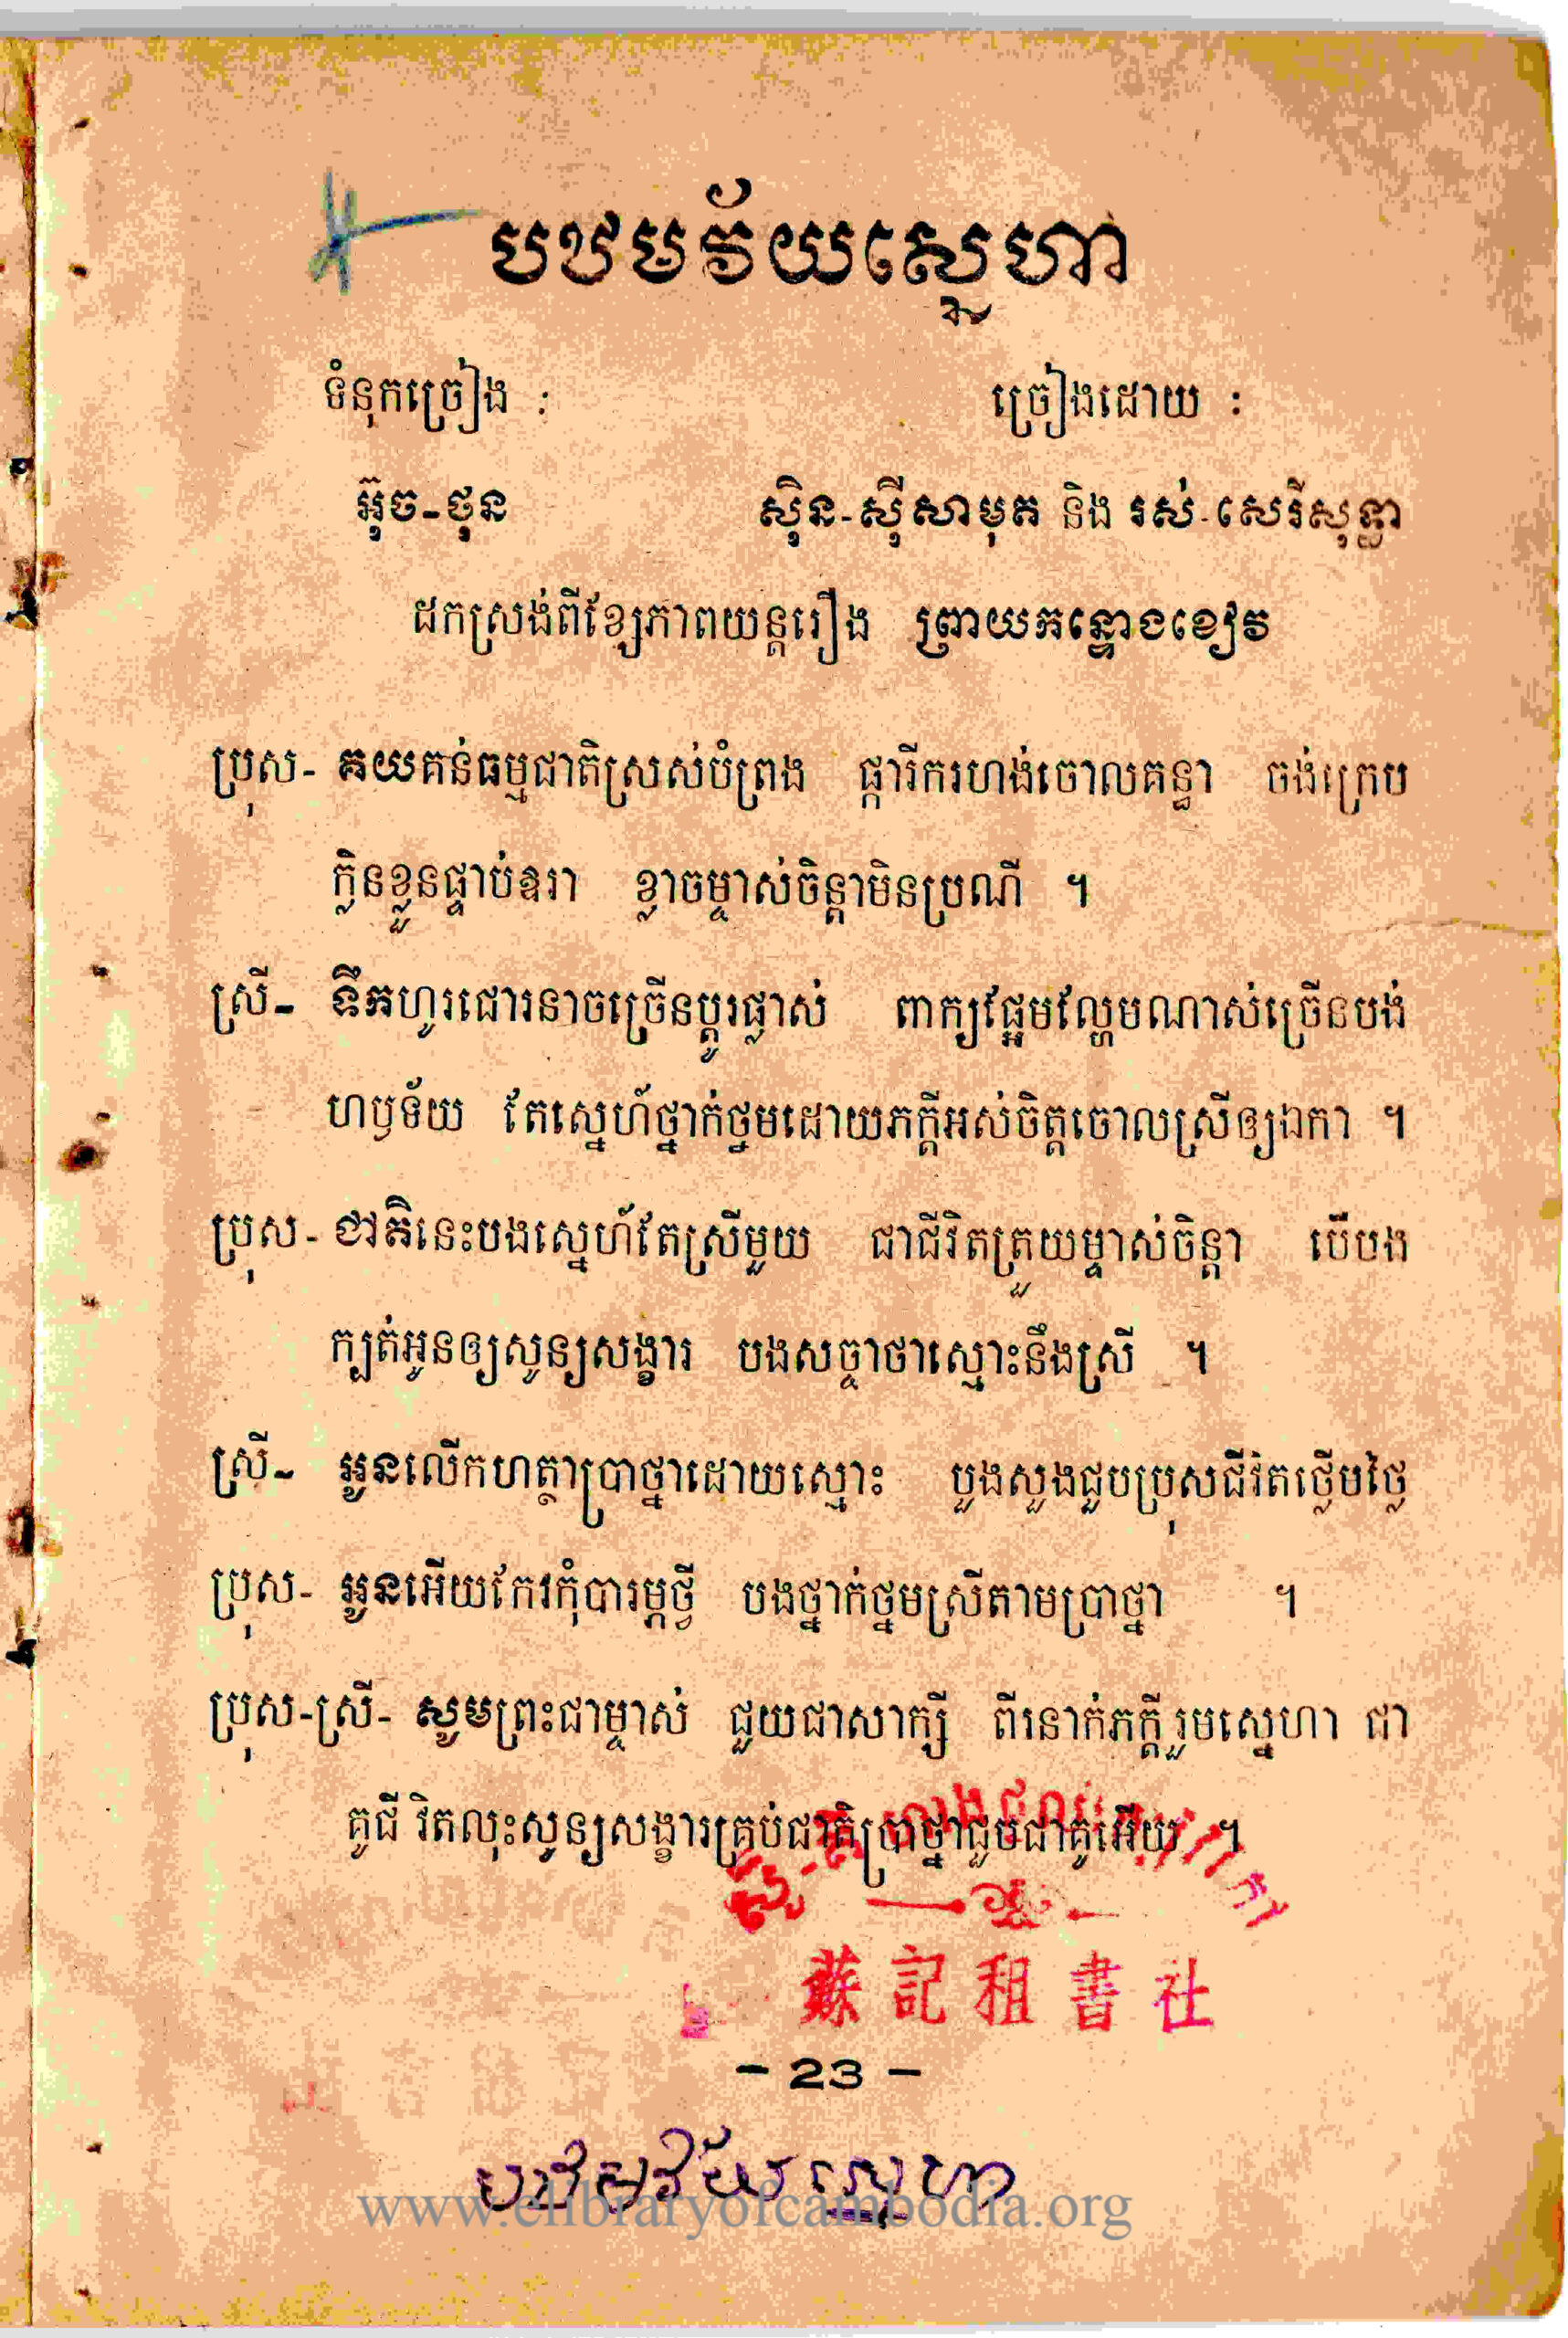 បឋមវ័យស្នេហា
ទំនុកច្រៀង :
ច្រៀងដោយ :
អ៊ុច-ថុន
ស៊ិន-ស៊ីសាមុត និង រស់-សេរីសុទ្ធា
ដកស្រង់ពីខ្សែភាពយន្តរឿង ព្រាយកន្ទោងខៀវ
ប្រុស- គយគន់ធម្មជាតិស្រស់បំព្រង ផ្ការីករហង់ចោលគន្ធា ចង់ក្រេប
ក្លិនខ្លួនផ្ទាប់ឧរា ខ្លាចម្ចាស់ចិន្តាមិនប្រណី ។
ស្រី- ទឹកហូរជោរនាចច្រើនប្តូរផ្លាស់ ពាក្យផ្អែមល្ហែមណាស់ច្រើនបង់
ហឫទ័យ តែស្នេហ៍ថ្នាក់ថ្នមដោយភក្តីអស់ចិត្តចោលស្រីឲ្យឯកា ។
ប្រុស- ជាតិនេះបងស្នេហ៍តែស្រីមួយ ជាជីវិតត្រួយម្ចាស់ចិន្តា បើបង
ក្បត់អូនឲ្យសូន្យសង្ខារ បងសច្ចាថាស្មោះនឹងស្រី ។
ស្រី- អូនលើកហត្ថាប្រាថ្នាដោយស្មោះ បួងសួងជួបប្រុសជីវិតថ្លើមថ្លៃ
ប្រុស- អូនអើយកែវកុំបារម្ភថ្វី បងថ្នាក់ថ្នមស្រីតាមប្រាថ្នា ។
ប្រុស-ស្រី- សូមព្រះជាម្ចាស់ ជួយជាសាក្សី ពីរនាក់ភក្តីរួមស្នេហា ជា
គូជីវិតលុះសូន្យសង្ខារគ្រប់ជាតិប្រាថ្នាជួបជាគូអើយ ។
蘇記租書社
- 23 -
បឋមវ័យស្នេហា
www.elibraryofcambodia.org